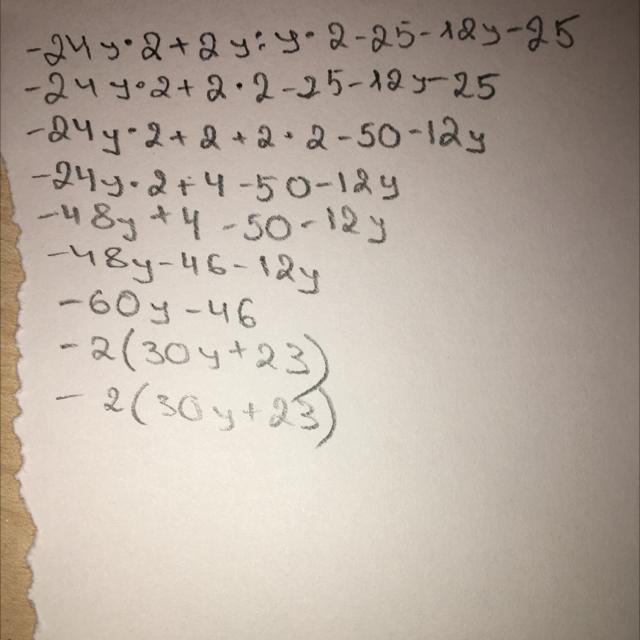 -24y·2+2y:y·2-25-12y-25
-24y·2+2·2-25-12y-25
-24y·2+2+2·2-50-12y
-24y·2+4-50-12y
-48y+4-50-12y
-48y-46-12y
-60y-46
-2(30y+23)
-2(30y+23)